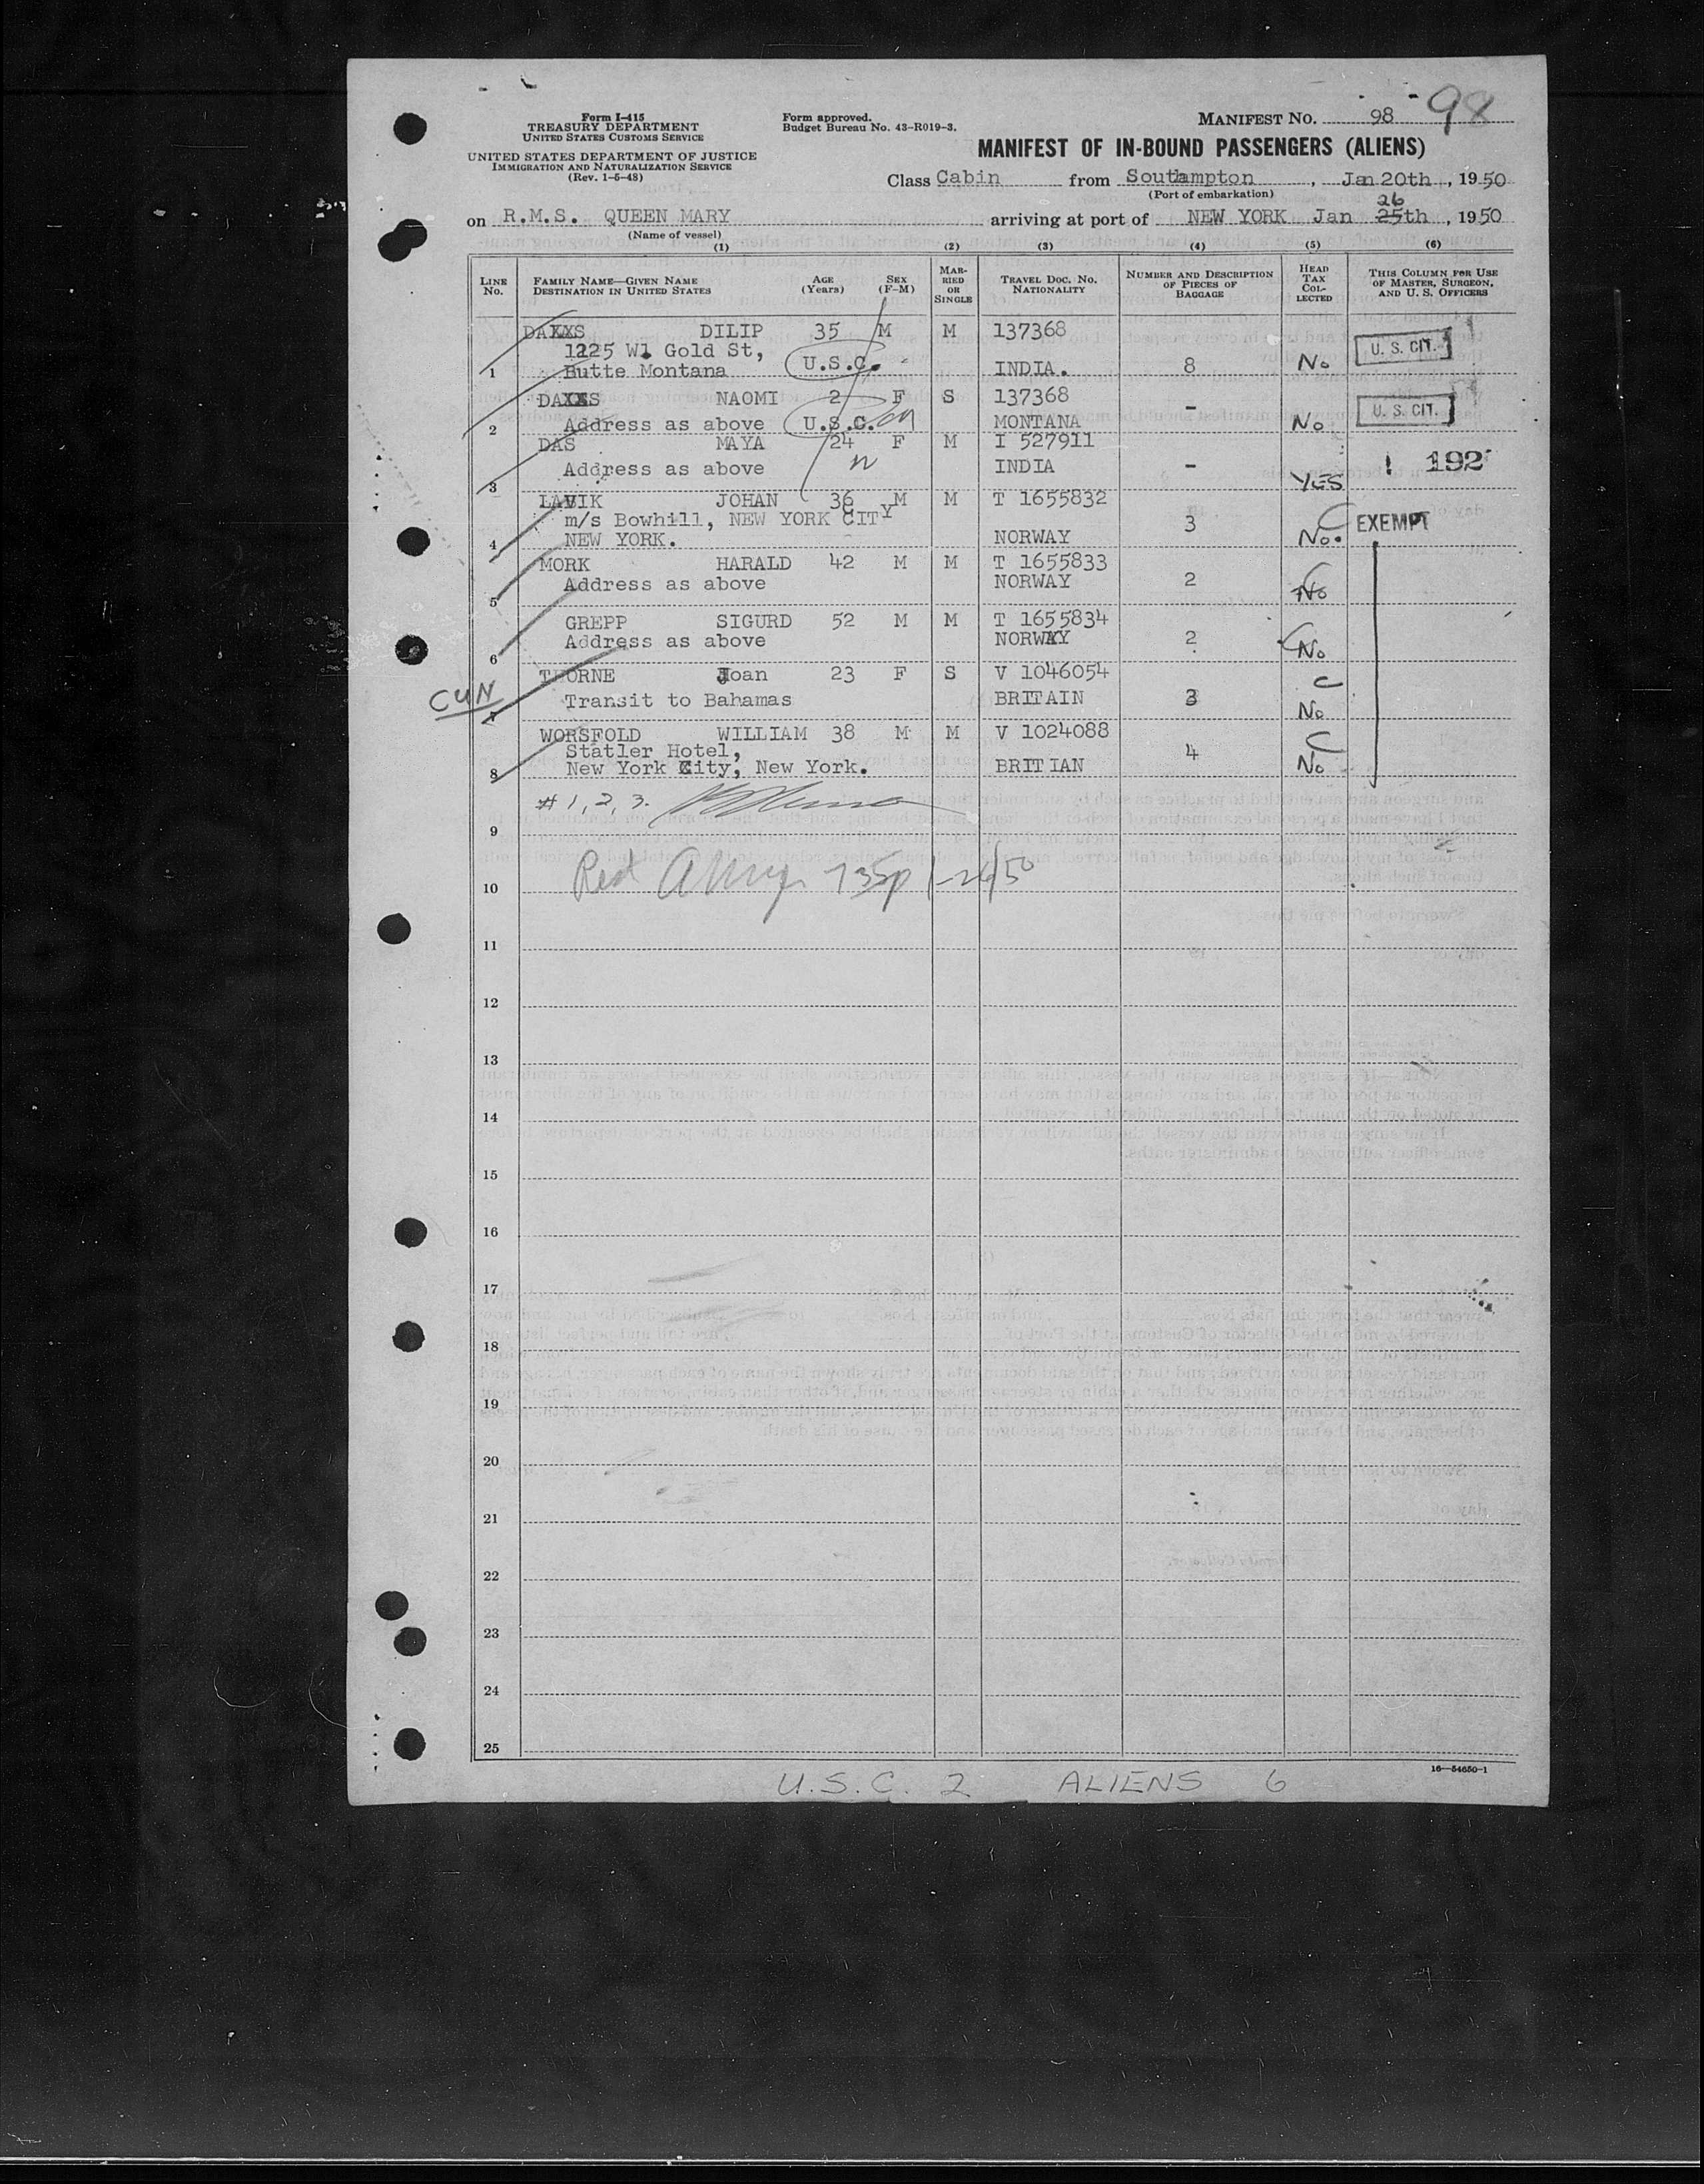 Form I-415
TREASURY DEPARTMENT
UNITED STATES CUSTOMS SERVICE
UNITED STATES DEPARTMENT OF JUSTICE
IMMIGRATION AND NATURALIZATION SERVICE
(Rev. 1-5-48)
Form approved.
Budget Bureau No. 43-R019-3.
MANIFEST NO. 98 98
MANIFEST OF IN-BOUND PASSENGERS (ALIENS)
Class Cabin from Southampton, Jan 20th, 1950
(Port of embarkation)
on R.M.S. QUEEN MARY arriving at port of NEW YORK Jan 25th 26, 1950
(Name of vessel)
(1) (2) (3) (4) (5) (6)
LINE No. FAMILY NAME—GIVEN NAME DESTINATION IN UNITED STATES AGE (Years) SEX (F-M) MARRIED OR SINGLE TRAVEL DOC. NO. NATIONALITY NUMBER AND DESCRIPTION OF PIECES OF BAGGAGE HEAD TAX COLLECTED THIS COLUMN FOR USE OF MASTER, SURGEON, AND U. S. OFFICERS
DAXXS DILIP 35 M M 137368
1225 W. Gold St,
1 Butte Montana U.S.C. INDIA. 8 No U. S. CIT.
DAXXS NAOMI 2 F S 137368
2 Address as above U.S.C. MONTANA - No U. S. CIT.
DAS MAYA 24 F M I 527911
3 Address as above INDIA - YES 192
LAVIK JOHAN 36 M M T 1655832
m/s Bowhill, NEW YORK CITY
4 NEW YORK. NORWAY 3 No. EXEMPT
MORK HARALD 42 M M T 1655833
5 Address as above NORWAY 2 No
GREPP SIGURD 52 M M T 1655834
6 Address as above NORWAY 2 No
THORNE Joan 23 F S V 1046054
CUN 7 Transit to Bahamas BRITAIN 3 C No
WORSFOLD WILLIAM 38 M M V 1024088
Statler Hotel,
8 New York City, New York. BRITIAN 4 C No
# 1, 2, 3.
9
10 735p 1-26/50
11
12
13
14
15
16
17
18
19
20
21
22
23
24
25
16—54650-1
U.S.C. 2 ALIENS 6